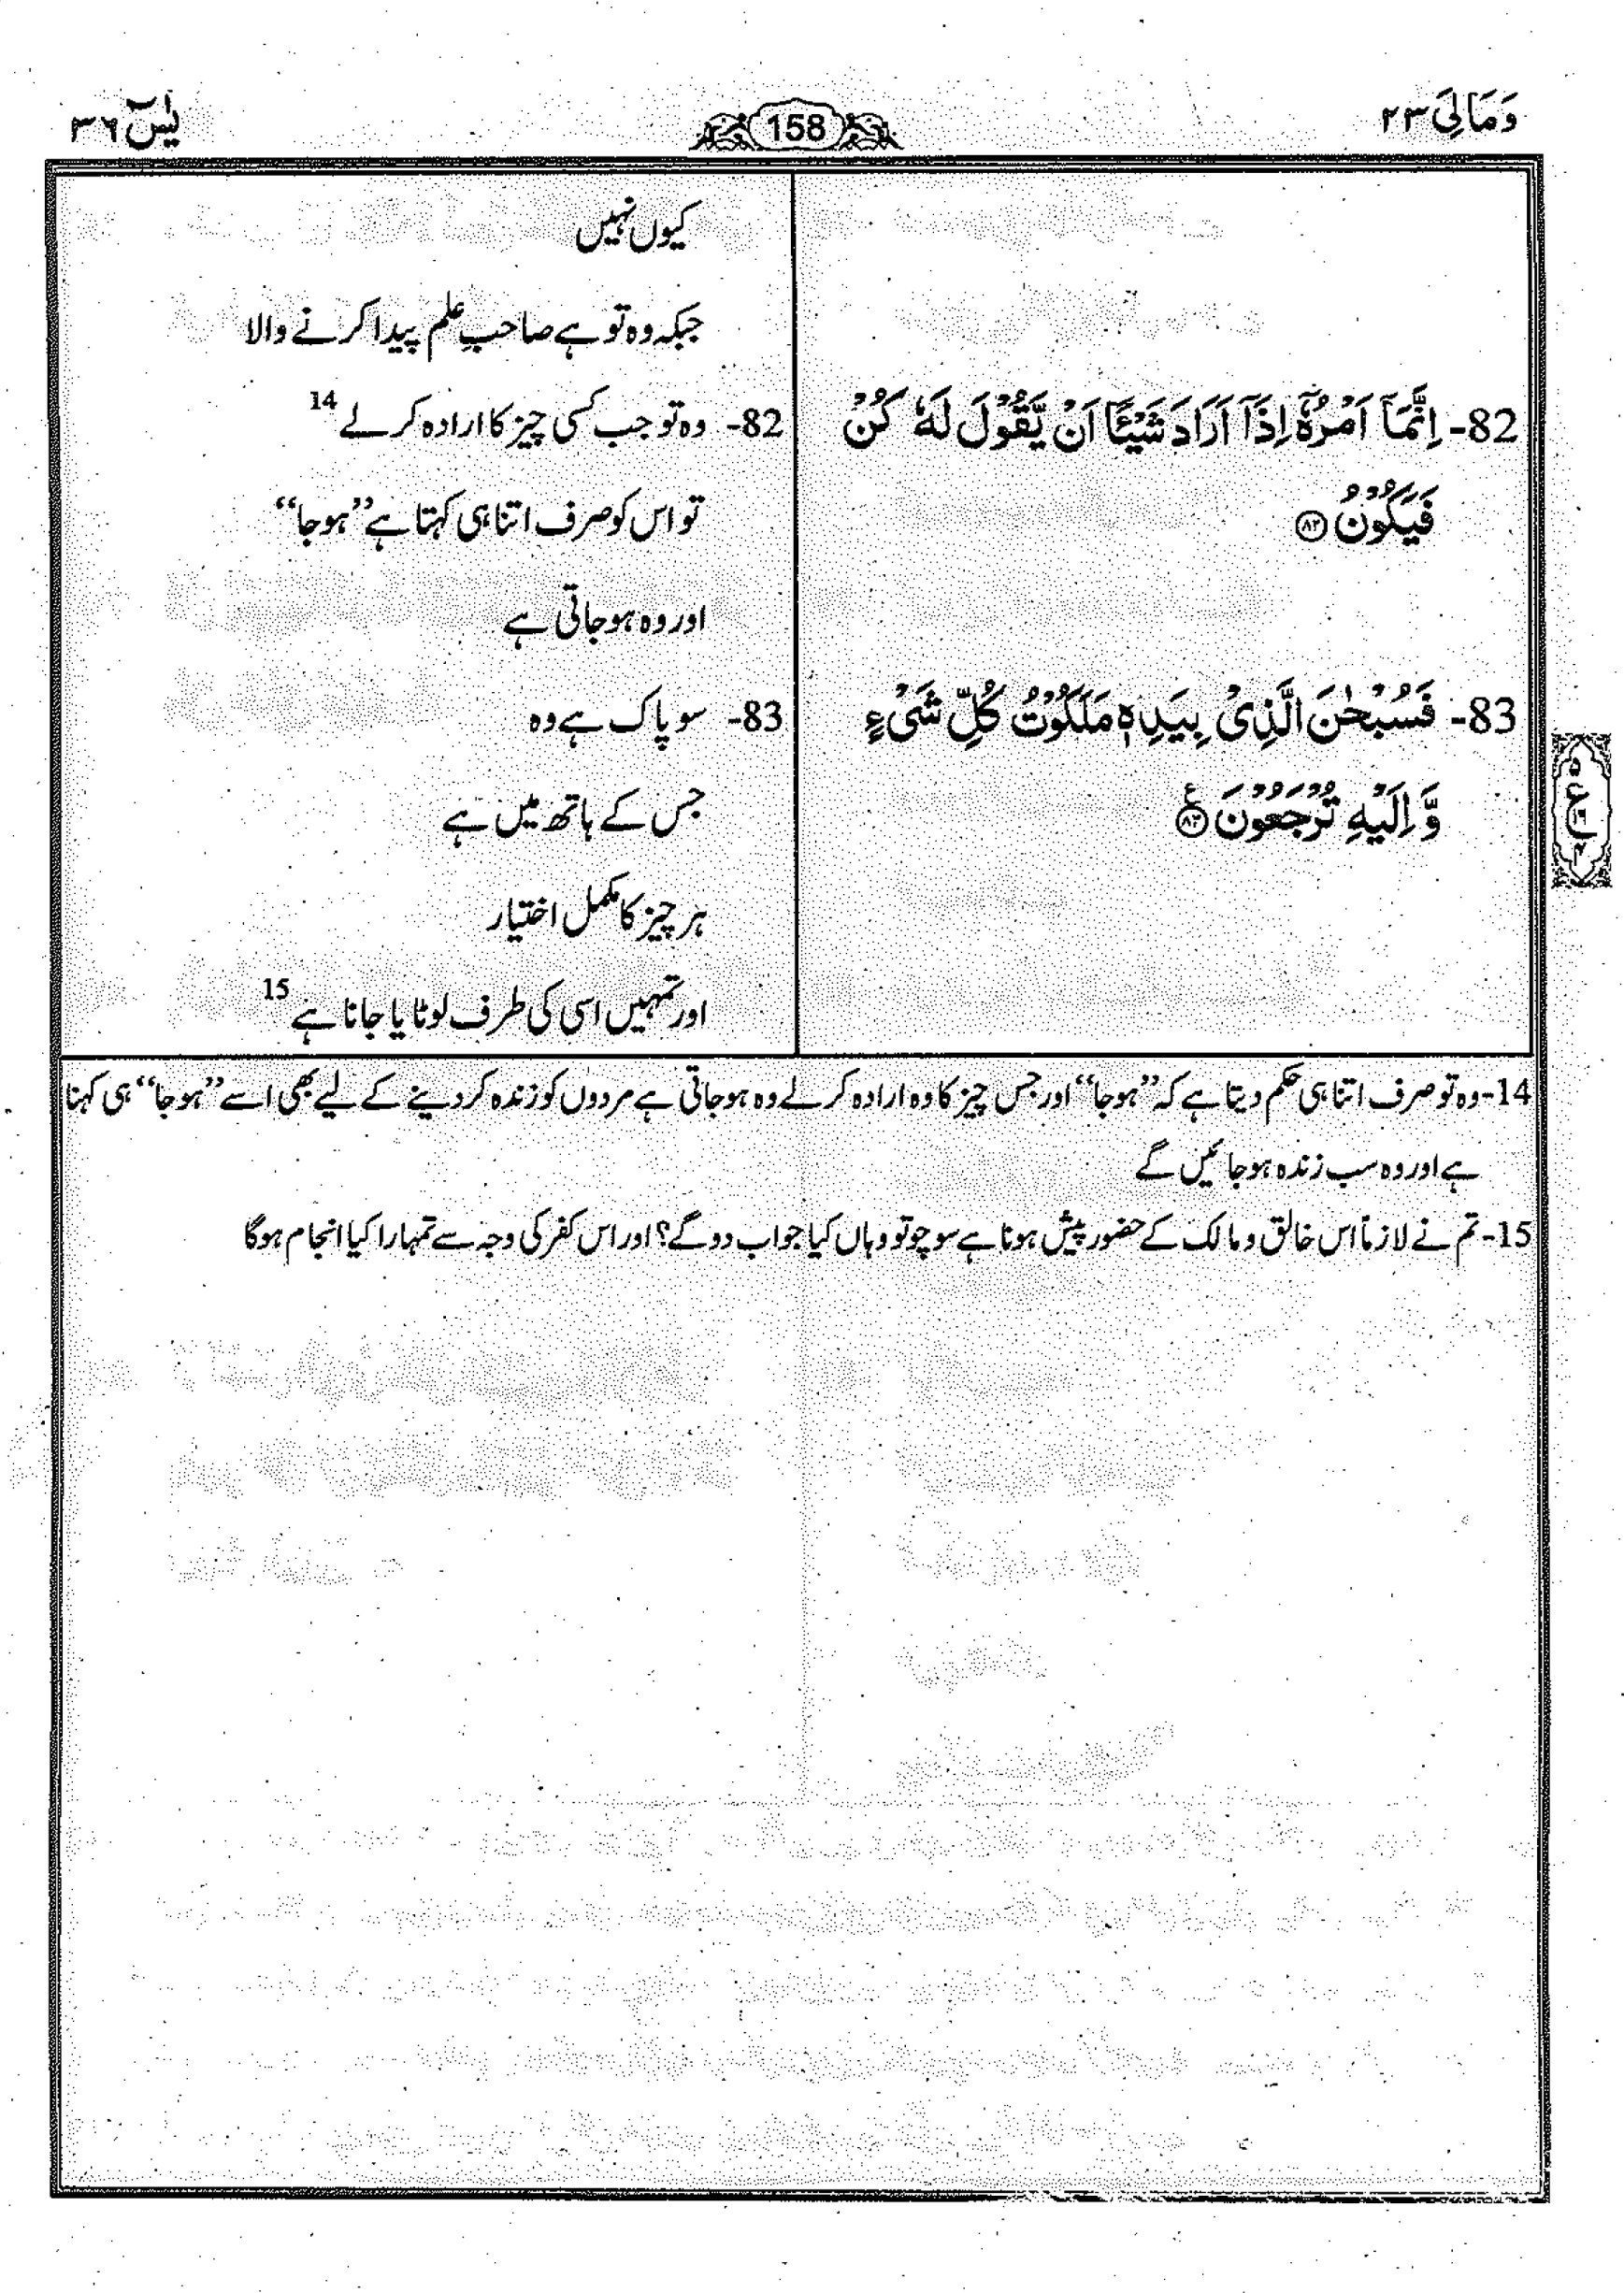 وَمَالِیَ ٢٣
158
یٰسٓ ٣٦
82- اِنَّمَاۤ اَمْرُهٗۤ اِذَاۤ اَرَادَ شَیْئًا اَنْ یَّقُوْلَ لَهٗ كُنْ
فَیَكُوْنُ ﴿۸۲﴾
83- فَسُبْحٰنَ الَّذِیْ بِیَدِهٖ مَلَكُوْتُ كُلِّ شَیْءٍ
وَّ اِلَیْهِ تُرْجَعُوْنَ ﴿۸۳﴾
کیوں نہیں
جبکہ وہ تو ہے صاحبِ علم پیدا کرنے والا
82- وہ تو جب کسی چیز کا ارادہ کر لے 14
تو اس کو صرف اتنا ہی کہتا ہے ’’ہو جا‘‘
اور وہ ہو جاتی ہے
83- سو پاک ہے وہ
جس کے ہاتھ میں ہے
ہر چیز کا مکمل اختیار
اور تمہیں اسی کی طرف لوٹایا جانا ہے 15
14- وہ تو صرف اتنا ہی حکم دیتا ہے کہ ’’ہو جا‘‘ اور جس چیز کا وہ ارادہ کر لے وہ ہو جاتی ہے مردوں کو زندہ کر دینے کے لیے بھی اسے ’’ہو جا‘‘ ہی کہنا
ہے اور وہ سب زندہ ہو جائیں گے
15- تم نے لازماً اس خالق و مالک کے حضور پیش ہونا ہے سوچو تو وہاں کیا جواب دو گے؟ اور اس کفر کی وجہ سے تمہارا کیا انجام ہوگا